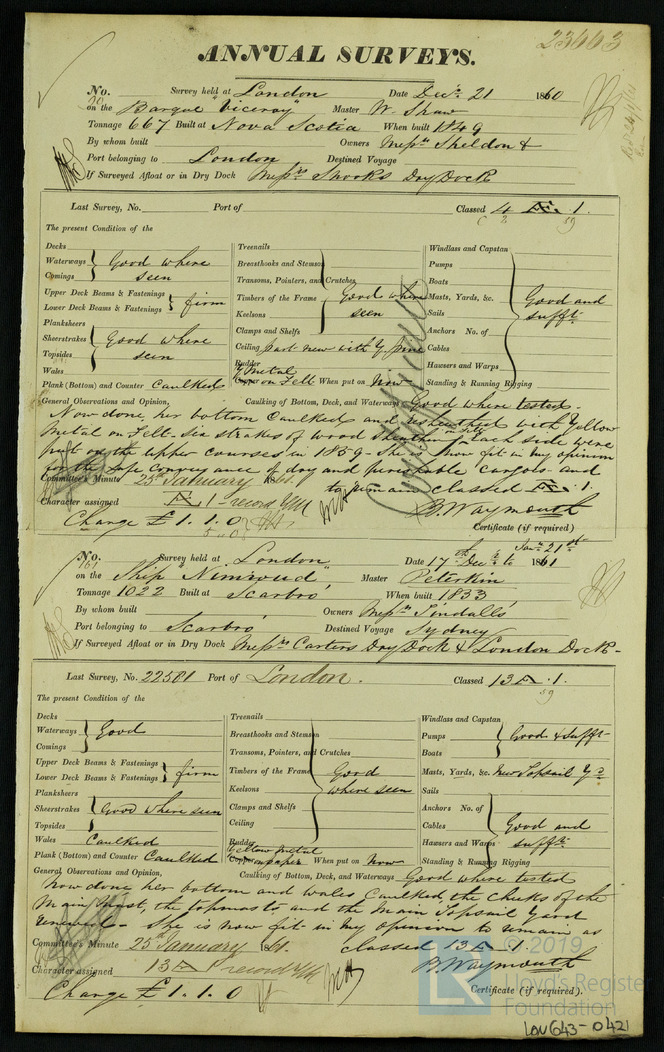 23663
ANNUAL SURVEYS.
No. Survey held at London Date Decr 21 1860
on the Barque "Viceroy" Master W. Shaw
Tonnage 667 Built at Nova Scotia When built 1849
By whom built Owners Messrs Sheldon &
Port belonging to London Destined Voyage
If Surveyed Afloat or in Dry Dock Messrs Shooks Dry Dock
Last Survey, No. Port of Classed 4 Æ 1.
59
The present Condition of the
Decks
Waterways Good where
Comings seen
Upper Deck Beams & Fastenings firm
Lower Deck Beams & Fastenings
Planksheers
Sheerstrakes Good where
Topsides seen
Wales
Plank (Bottom) and Counter Caulked
Treenails
Breasthooks and Stemson
Transoms, Pointers, and Crutches
Timbers of the Frame Good where
Keelsons seen
Clamps and Shelfs
Ceiling part new with Y Pine
Rudder
Y Metal
Copper on Felt When put on Now
Windlass and Capstan
Pumps
Boats
Masts, Yards, &c. Good and
Sails suffт
Anchors No. of
Cables
Hawsers and Warps
Standing & Running Rigging
General Observations and Opinion, Caulking of Bottom, Deck, and Waterways Good where tested.
Now done, her bottom Caulked and resheathed with Yellow
Metal on Felt - six strakes of wood Sheathing on Felt each side were
put on the upper courses in 1859 - She is now fit in my opinion
for the safe conveyance of dry and perishable cargoes and
to remain classed Æ 1.
Committee's Minute 25 January 1861.
Character assigned Æ 1 - record
B. Waymouth
Charge £1.1.0
Certificate (if required)
Jany 21st
No. Survey held at London Date 17th Decr to 1861
on the Ship "Nimroud" Master Peterkin
Tonnage 1022 Built at Scarbro' When built 1833
By whom built Owners Messrs Tindalls
Port belonging to Scarbro Destined Voyage Sydney
If Surveyed Afloat or in Dry Dock Messrs Carters Dry Dock & London Dock -
Last Survey, No. 22581 Port of London. Classed 13 A .1.
59
The present Condition of the
Decks
Waterways Good
Comings
Upper Deck Beams & Fastenings firm
Lower Deck Beams & Fastenings
Planksheers
Sheerstrakes Good where seen
Topsides
Wales Caulked
Plank (Bottom) and Counter Caulked
Treenails
Breasthooks and Stemson
Transoms, Pointers, and Crutches
Timbers of the Frame Good
Keelsons where seen
Clamps and Shelfs
Ceiling
Rudder
Yellow Metal
Copper on paper When put on Now
Windlass and Capstan
Pumps Good & Sufft
Boats
Masts, Yards, &c. New Topsail Yd
Sails
Anchors No. of
Cables Good and
Hawsers and Warps sufft
Standing & Running Rigging
General Observations and Opinion, Caulking of Bottom, Deck, and Waterways Good where tested
Now done, her bottom and wales Caulked, the cheeks of the
Main Mast, the topmasts and the Main Topsail Yard
renewed - She is now fit in my opinion to remain as
classed 13 A .1.
Committee's Minute 25 January 1861.
Character assigned 13 A 1 record
B. Waymouth
Charge £1.1.0
Certificate (if required).
© 2019
Lloyd's Register
Foundation
LON643-0421